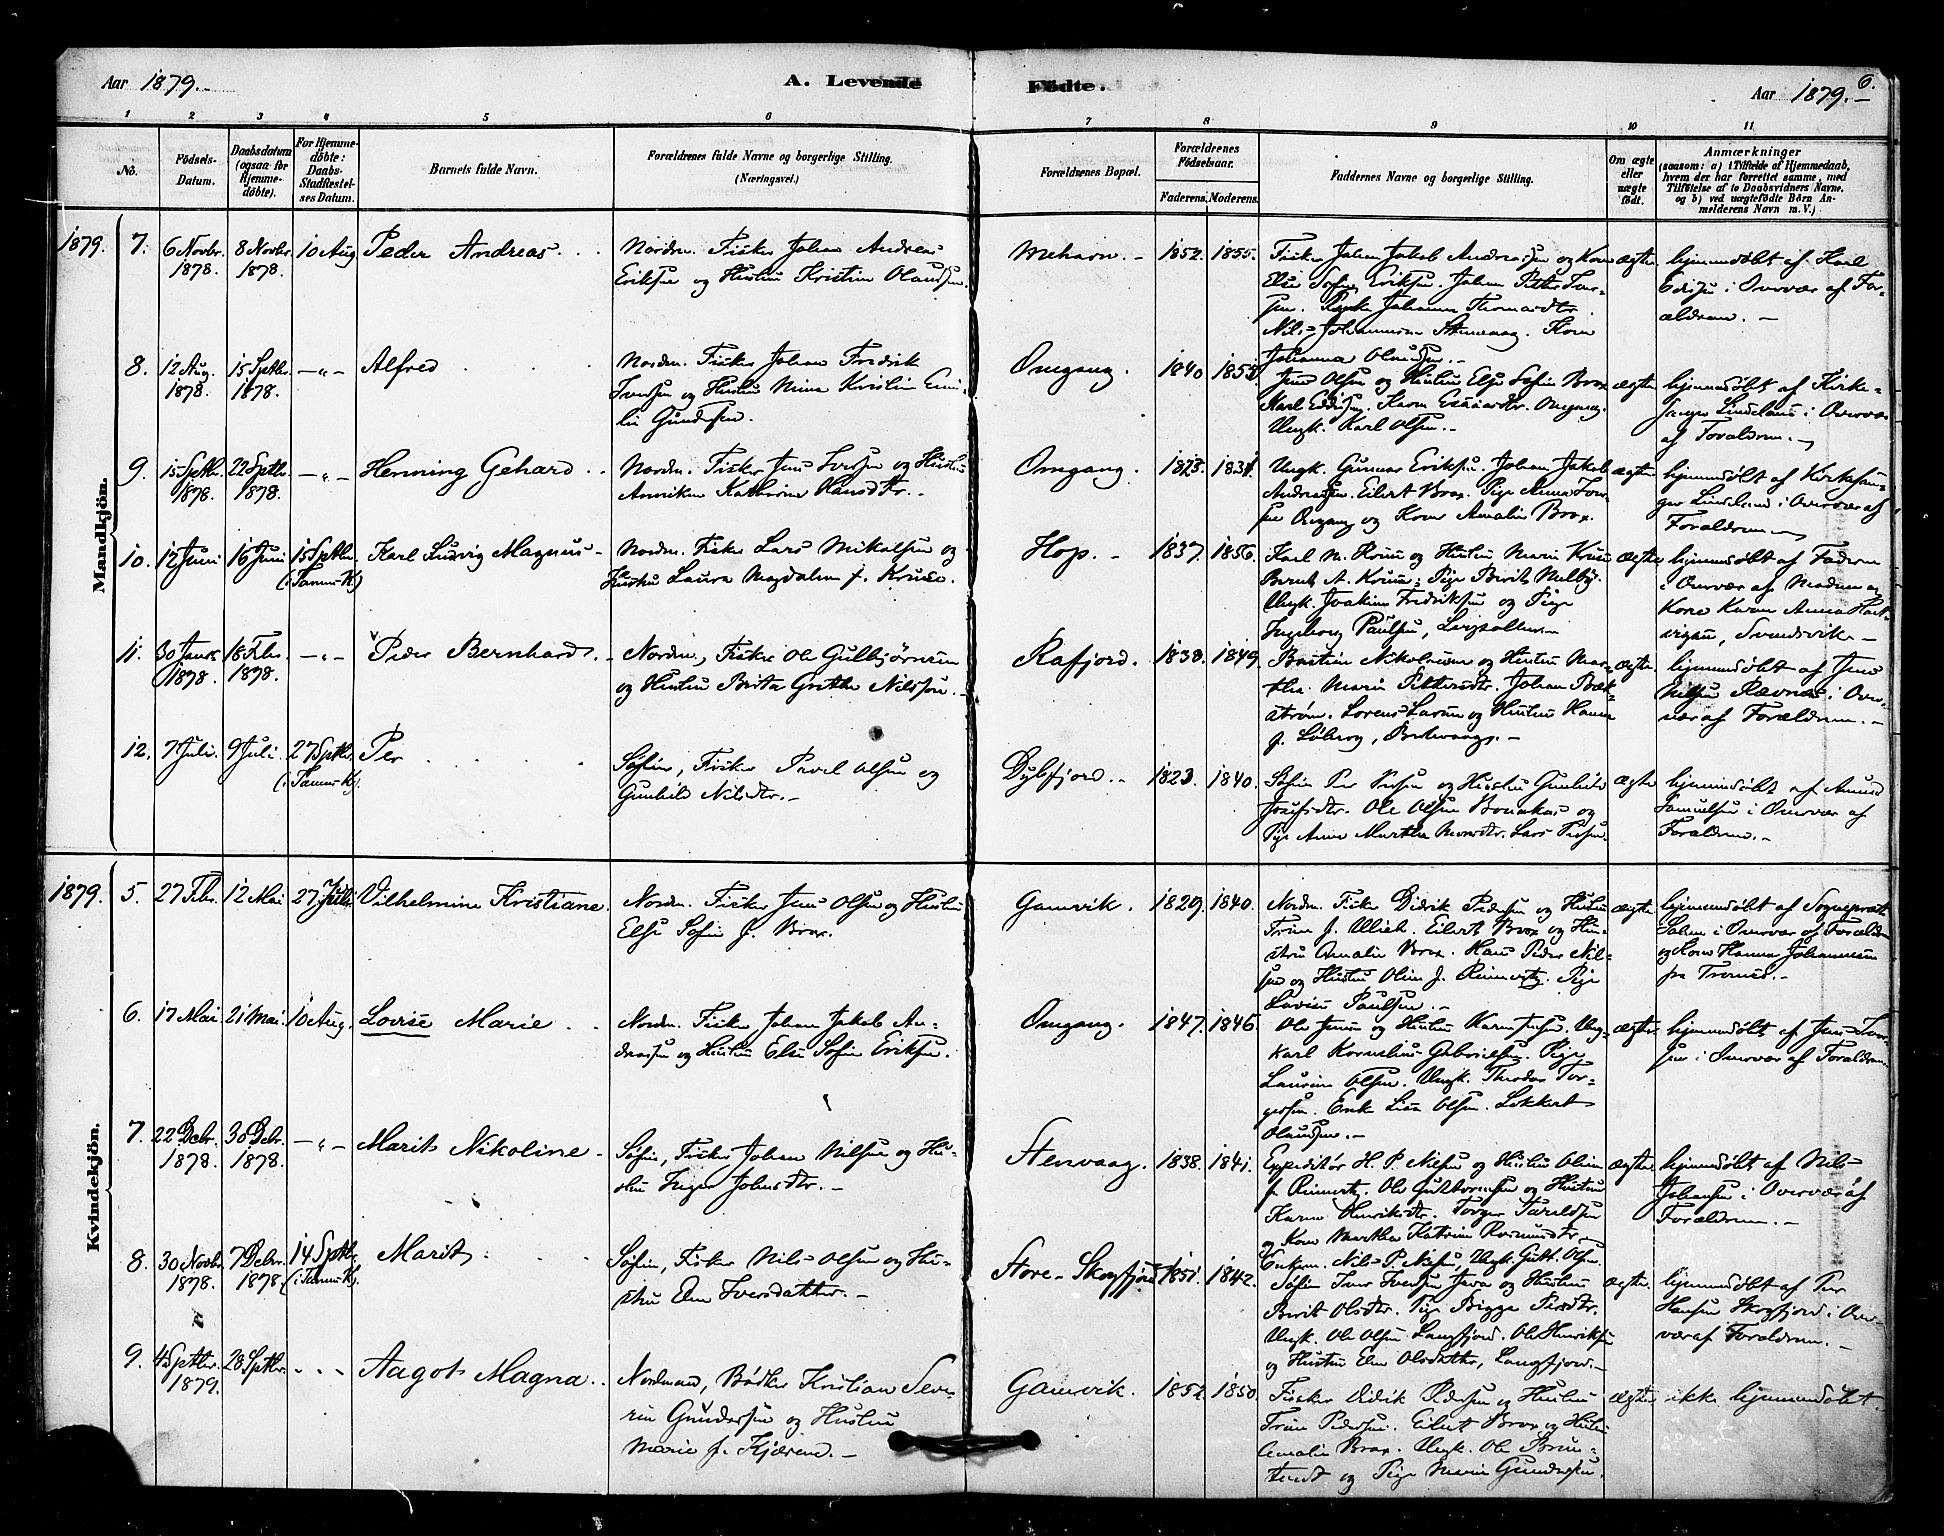 Aar 1879.
A. Levende
Födte.
Aar 1879.
6.
1 2 3 4 5 6 7 8 9 10 11
No.
Födsels-
Datum.
Daabsdatum
(ogsaa for
Hjemme-
döbte).
For Hjemme-
döbte:
Daabs-
Stadfæstel-
ses Datum.
Barnets fulde Navn.
Forældrenes fulde Navne og borgerlige Stilling.
(Næringsvei.)
Forældrenes Bopæl.
Forældrenes
Födselsaar.
Faderens. Moderens.
Faddernes Navne og borgerlige Stilling.
Om ægte
eller
uægte
født.
Anmærkninger
(saasom: a) i Tilfælde af Hjemmedaab,
hvem der har forrettet samme, med
Tilföielse af to Daabsvidners Navne,
og b) ved uægtefödte Börn An-
melderens Navn m. V.)
Mandkjön.
1879. 7. 6 Novbr. 1878. 8 Novbr. 1878. 10 Aug. Peder Andreas
Nordm. Fisker Johan Andreas
Eriksen og Hustru Kristine Olausen.
Mehavn. 1852. 1855.
Fisker Johan Jakob Andreasen og Kone
Else Sofie Eriksen. Johan Petter Iver-
sen. Johanna Thomasdtr.
Nils Johannesen Kone
Johanna Olausen.
ægte
hjemmedøbt af Karl
Edisen i Overvær af For-
ældrene.
8. 12 Aug. 1878. 15 Sptbr. 1878. -"- Alfred
Nordm. Fisker Johan Fredrik
Iversen og Hustru Nina Kristine Emi-
lie Gundersen.
Omgang. 1840
Jens Olsen og Hustru Else Sofie Brox
Karl Edisen. Omgang.
Ungk. Karl Olsen.
ægte
hjemmedøbt af Kirke-
sanger Lindeland i Overvær
af Forældrene.
9. 15 Sptbr. 1878. 22 Sptbr. 1878. -"- Henning Gehard
Nordm. Fisker Jens Iversen og Hustru
Anniken Kathrine Hansdtr.
Omgang. 1823. 1837.
Ungk. Gunnar Eriksen. Johan Jakob
Andreasen. Eilert Brox. Pige Anna Iver-
sen Omgang og Kone Amalie Brox.
ægte
hjemmedøbt af Kirkesan-
ger Lindeland i Overvær af
Forældrene.
10. 12 Juni 16 Juni 15 Sptbr. (i Tanus K) Karl Ludvig Magnus
Nordm. Fisker Lars Mikalsen og
Hustru Laura Magdalena f. Kruse.
Hop. 1837. 1856.
Karl M. Kruse og Hustru Marie Kruse
Bernt A. Kruse. Pige Berit Melby.
Ungk. Joakim Fredriksen og Pige
Ingeborg Paulsen,
ægte
hjemmedøbt af Faderen
i Overvær af Moderen og
Kone Karen Anna Hart-
vigsen, Svendsvik.
11. 30 Januar 1878. 18 Fbr. 1878. -"- Peder Bernhard
Nordm., Fisker Ole Gulbjørnsen
og Hustru Brita Grethe Nilssen.
Kafjord. 1838. 1849
Bastian Nikolaisen og Hustru Mar-
tha Marie Pettersdtr. Johan Bæk-
strøm. Lorens Larsen og Hustru Hanna
f. Løberg,
ægte
hjemmedøbt af Jens
Nilsen Rævnæs i Over-
vær af Forældrene.
12. 7 Juli. 9 Juli. 27 Sptbr. (i Tanus K). Per
Søfin, Fisker Pavel Olsen og
Gunhild Nilsdtr.
Dybfjord. 1823. 1840.
Søfin Per Persen og Hustru Gunhild
Josefsdtr. Ole Olsen Bonakas og
Pige Anne Martha Monsdtr. Lars Persen.
ægte
hjemmedøbt af Amund
Samuelsen i Overvær af
Forældrene.
Kvindekjön.
1879. 5. 27 Fbr. 12 Mai 27 Juli Vilhelmine Kristiane.
Nordm. Fisker Jens Olsen og Hustru
Else Sofie f. Brox.
Gamvik. 1829. 1840.
Nordm. Fisker Didrik Pedersen og Hustru
Trine f. Ulich. Eilert Brox og Hu-
stru Amalie Brox. Hans Peder Nil-
sen og Hustru Oline f. Reinertz. Pige
Lovise Paulsen.
ægte
hjemmedøbt af Sognepræst
Balke i Overvær af Forældre
og Kone Hanna Johannesen
fra Tromsø.
6. 17 Mai 21 Mai. 10 Aug. Lovise Marie
Nordm. Fisker Johan Jakob An-
dreasen og Hustru Else Sofie Eriksen.
Omgang. 1847. 1846.
Ole Jensen og Hustru Karen Jensen. Ungk.
Karl Kornelius Gabrielsen. Pige
Laurine Olsen. Ungk. Theodor Tor-
gersen. Enke Lisa Olsen. Lokkert
Olausen.
ægte.
hjemmedøbt af Jens Iver-
sen i Overvær af Forældrene.
7. 22 Debr. 1878. 30 Debr. 1878. -"- Marit Nikoline
Søfin, Fisker Johan Nilsen og Hu-
stru Inger Johnsdtr.
Stenvaag. 1838. 1841.
Expeditør H. P. Nilsen og Hustru Oline
f. Reinertz. Ole Guttormsen og Hustru
Karen Henriksdtr. Torger Tareldsen
og Kone Martha Katrine Rasmusdtr.
Enkem. Nils P. Nilsen, Ungk. Gutt. Olsen.
ægte
hjemmedøbt af Nils
Johansen i Overvær af
Forældrene.
8. 30 Novbr. 1878. 7 Debr. 1878. 14 Sptbr. (i Tanus K). Marit
Søfin, Fisker Nils Olsen og Hu-
stru Elen Iversdatter.
Store-Skogfjord 1851. 1842.
Søfin Iver Iversen Java og Hustru
Berit Olsdtr. Pige Bigge Persdtr.
Ungk. Ole Olsen Langfjord. Ole Henriksen
og Hustru Elen Olsdatter, Langfjord.
ægte.
hjemmedøbt af Per
Hansen Skogfjord i Over-
vær af Forældrene.
9. 4 Sptbr. 1879. 28 Sptbr. Aagot Magna
Nordmand, Bødker Kristian Seve-
rin Gundersen og Hustru
Marie f. Kjærend.
Gamvik. 1852 1850.
Fisker Didrik Pedersen og Hustru
Trine Pedersen. Eilert Brox og Hustru
Amalie Brox. Ungk. Ole Brun-
tredt og Pige Marie Gundersen.
ægte
ikke hjemmedøbt.